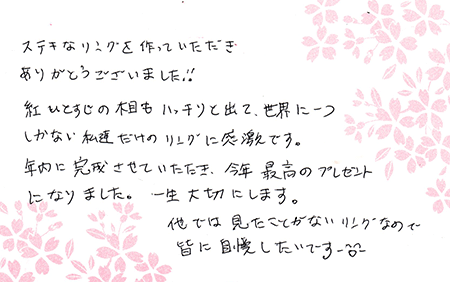 ステキなリングを作っていただき
ありがとうございました!!
紅ひとすじの木目もハッキリと出て、世界に一つ
しかない私達だけのリングに感激です。
年内に完成させていただき、今年最高のプレゼント
になりました。一生大切にします。
他では見たことがないリングなので
皆に自慢したいです